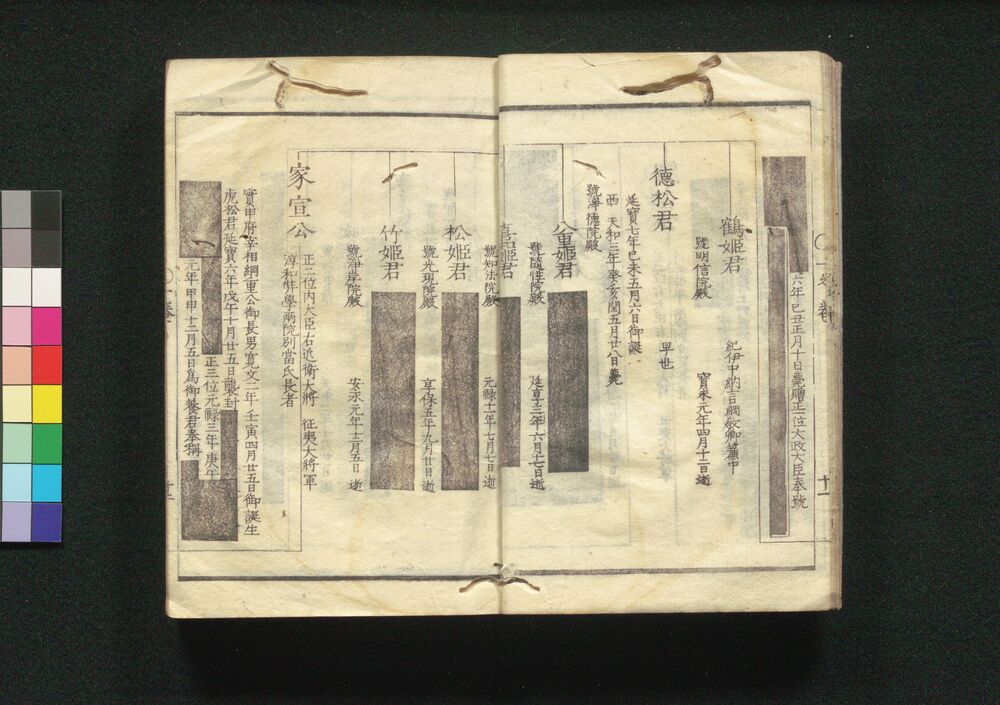 六年己丑正月十日薨贈正一位大政大臣奉號
十一
鶴姫君
紀伊中納言綱敎卿簾中
號明信院殿
寳永元年四月十二日逝
德松君
早世
延寳七年己未五月六日御誕
西
天和三年癸亥閏五月廿八日薨
號淨德院殿
八重姫君
號隨性院殿
延享三年六月十七日逝
喜姫君
號知法院殿
元禄十一年七月七日逝
松姫君
號光現院殿
享保五年九月廿日逝
竹姫君
號淨岸院殿
安永元年十二月五日逝
家宣公
正二位内大臣右近衞大將
征夷大將軍
淳和奬學兩院別當氏長者
實甲府宰相綱重公御長男寛文二年壬寅四月廿五日御誕生
虎松君延寳六年戊午十月廿五日襲封
正三位元禄三年庚午
元年甲申十二月五日爲御養君奉稱
十二